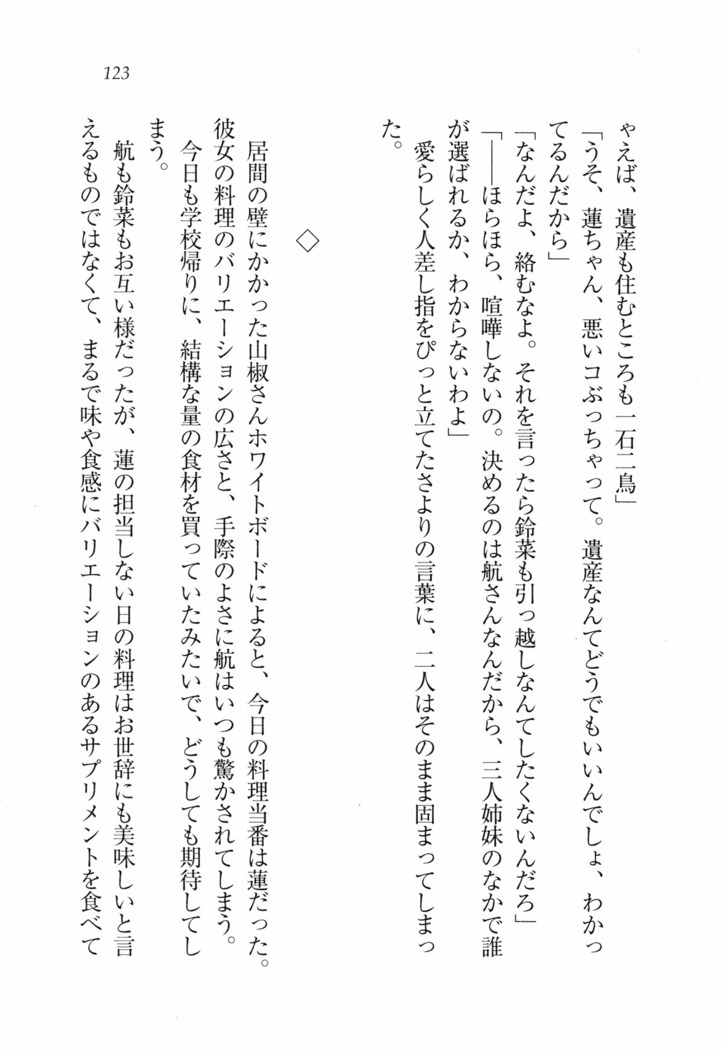 123
ゃえば、遺産も住むところも一石二鳥」
「うそ、蓮ちゃん、悪いコぶっちゃって。遺産なんてどうでもいいんでしょ、わかっ
てるんだから」
「なんだよ、絡むなよ。それを言ったら鈴菜も引っ越しなんてしたくないんだろ」
「――ほらほら、喧嘩しないの。決めるのは航さんなんだから、三人姉妹のなかで誰
が選ばれるか、わからないわよ」
愛らしく人差し指をぴっと立てたさよりの言葉に、二人はそのまま固まってしまっ
た。
◇
居間の壁にかかった山椒さんホワイトボードによると、今日の料理当番は蓮だった。
彼女の料理のバリエーションの広さと、手際のよさに航はいつも驚かされてしまう。
今日も学校帰りに、結構な量の食材を買っていたみたいで、どうしても期待してし
まう。
航も鈴菜もお互い様だったが、蓮の担当しない日の料理はお世辞にも美味しいと言
えるものではなくて、まるで味や食感にバリエーションのあるサプリメントを食べて